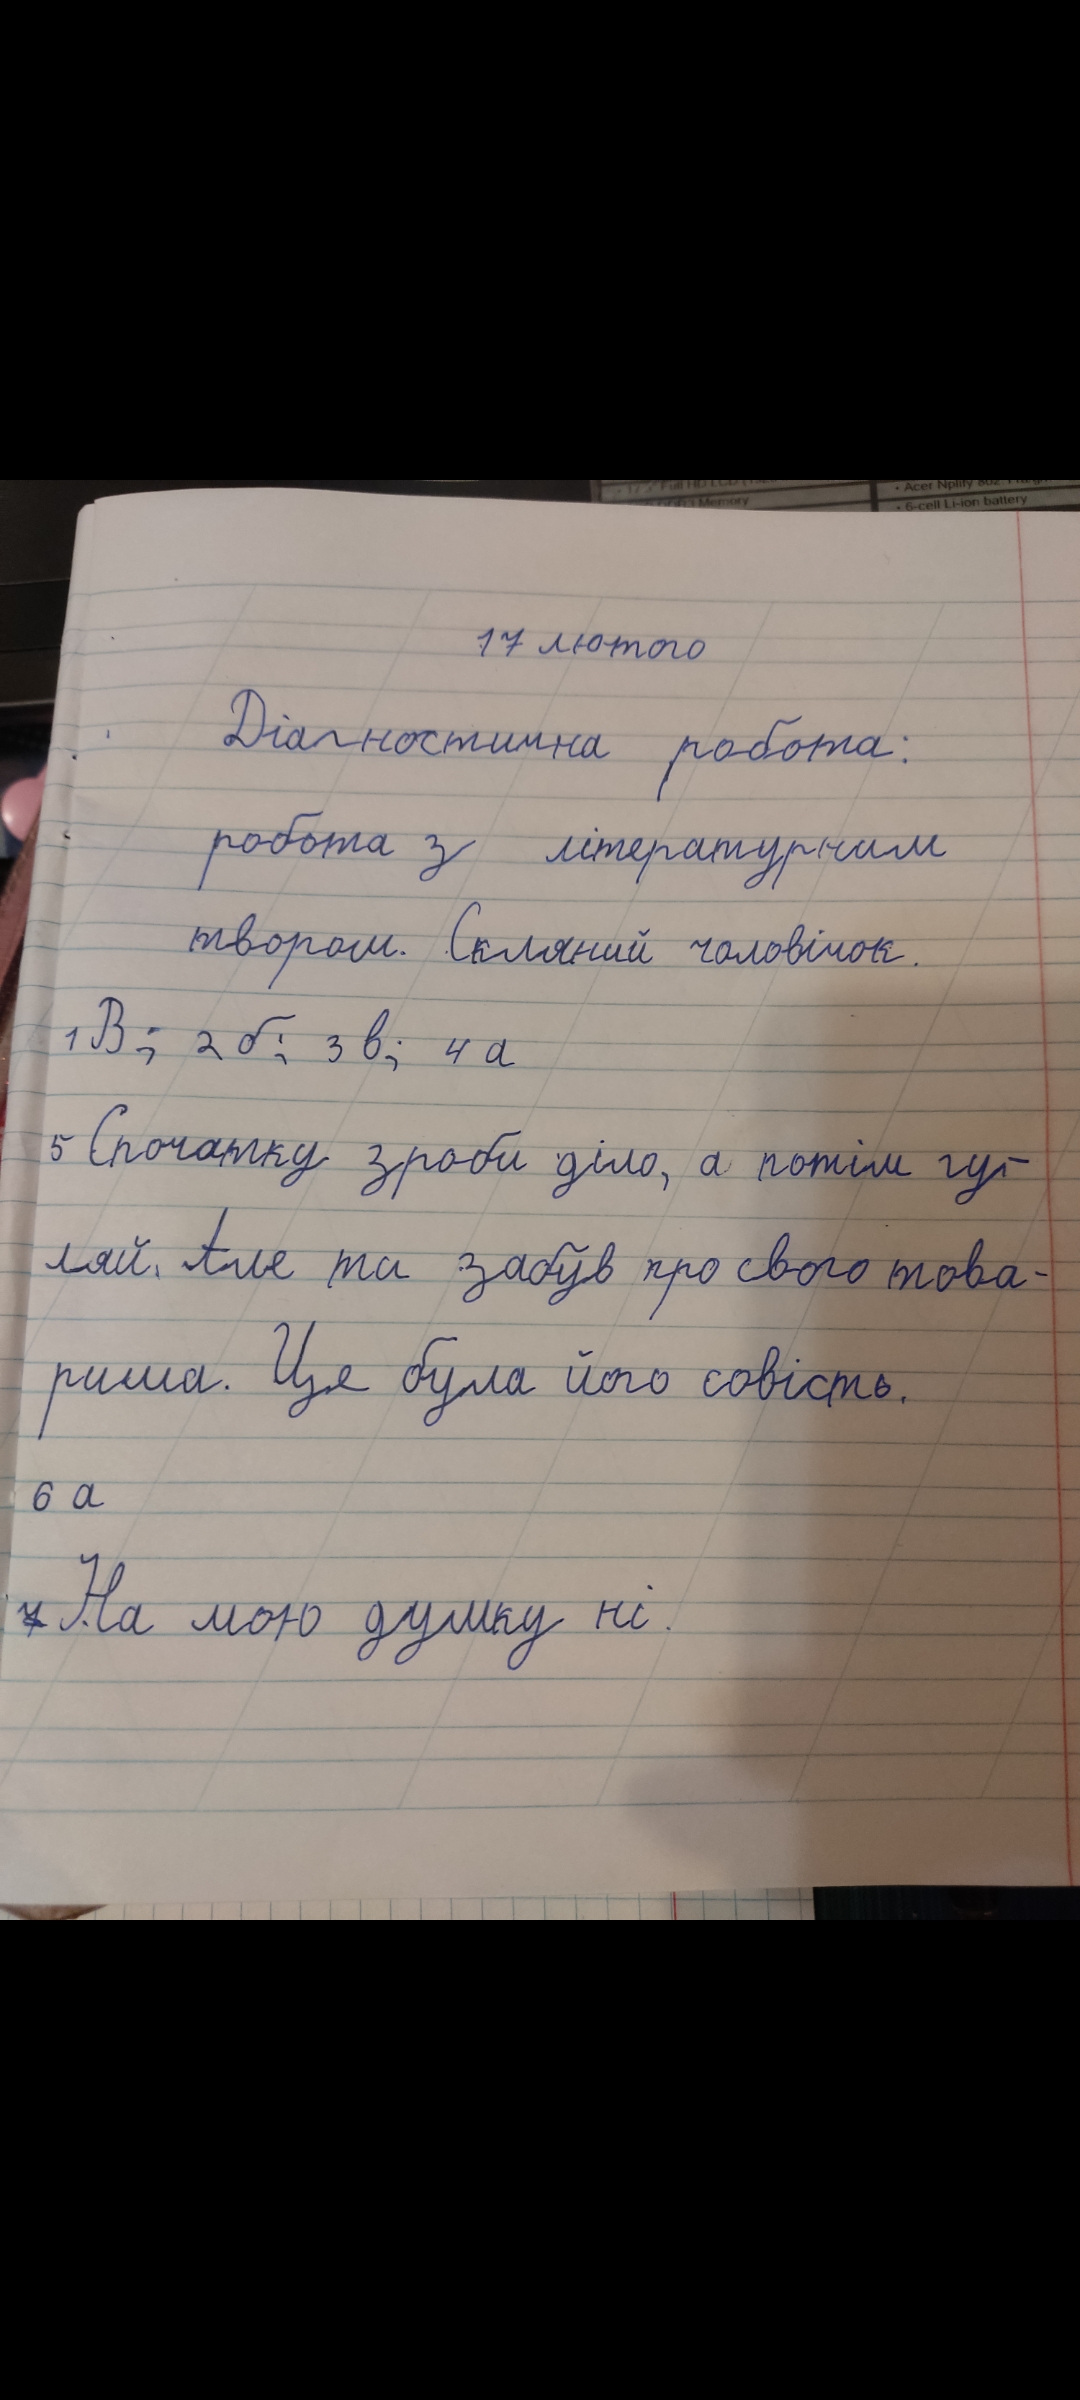 • Acer Nplify 802.
Memory
• 6-cell Li-ion battery
17 лютого
Діагностична робота:
робота з літературним
твором. Скляний чоловічок.
1 В; 2 б; 3 в; 4 а
5 Спочатку зроби діло, а потім гу-
ляй. Але ти забув про свого това-
риша. Це була його совість.
6 а
7 На мою думку ні.